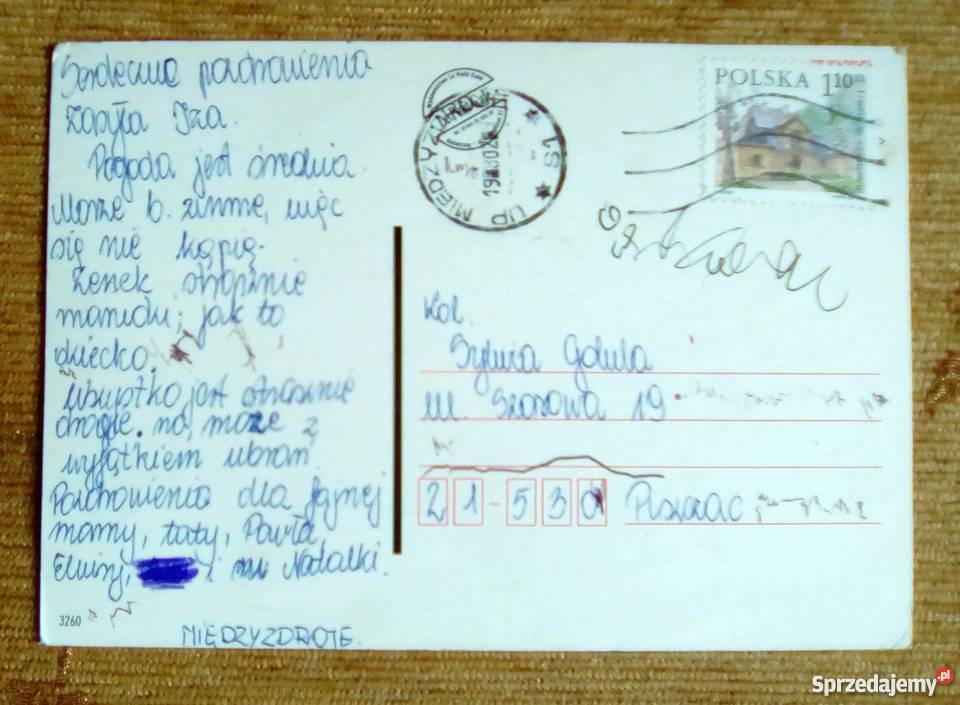 Serdeczne pozdrowienia
Iza.
Pogoda jest średnia.
Morze b. zimne, więc
się nie kąpię.
Zenek strasznie
marudzi; jak to
dziecko.
Wszystko jest strasznie
drogie. no, może z
wyjątkiem ubrań.
Pozdrowienia dla fajnej
mamy, taty, Pawła
i Natalki.
MIĘDZYZDROJE.
3260
UP MIĘDZYZDROJE
POLSKA 1.10 zł
Kol.
Sylwia Golula
ul. Szosowa 19
21-530 Piszczac
Sprzedajemy.pl